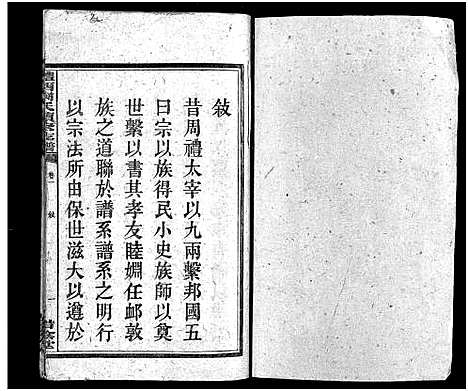 敍
昔周禮太宰以九兩繫邦國五
曰宗以族得民小史族師以奠
世繫以書其孝友睦婣任卹敦
族之道聯於譜系譜系之明行
以宗法所由保世滋大以遵於
卷一
敍
一